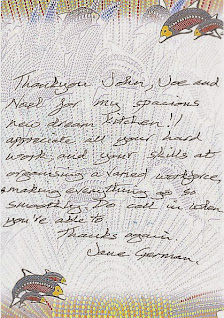 Thankyou John, Joe and
Noel for my spacious
new dream kitchen!!
appreciate all your hard
work and your skills at
organising a varied workforce,
making everything go so
smoothly. Do call in when
you're able to
Thanks again.
Jane German.